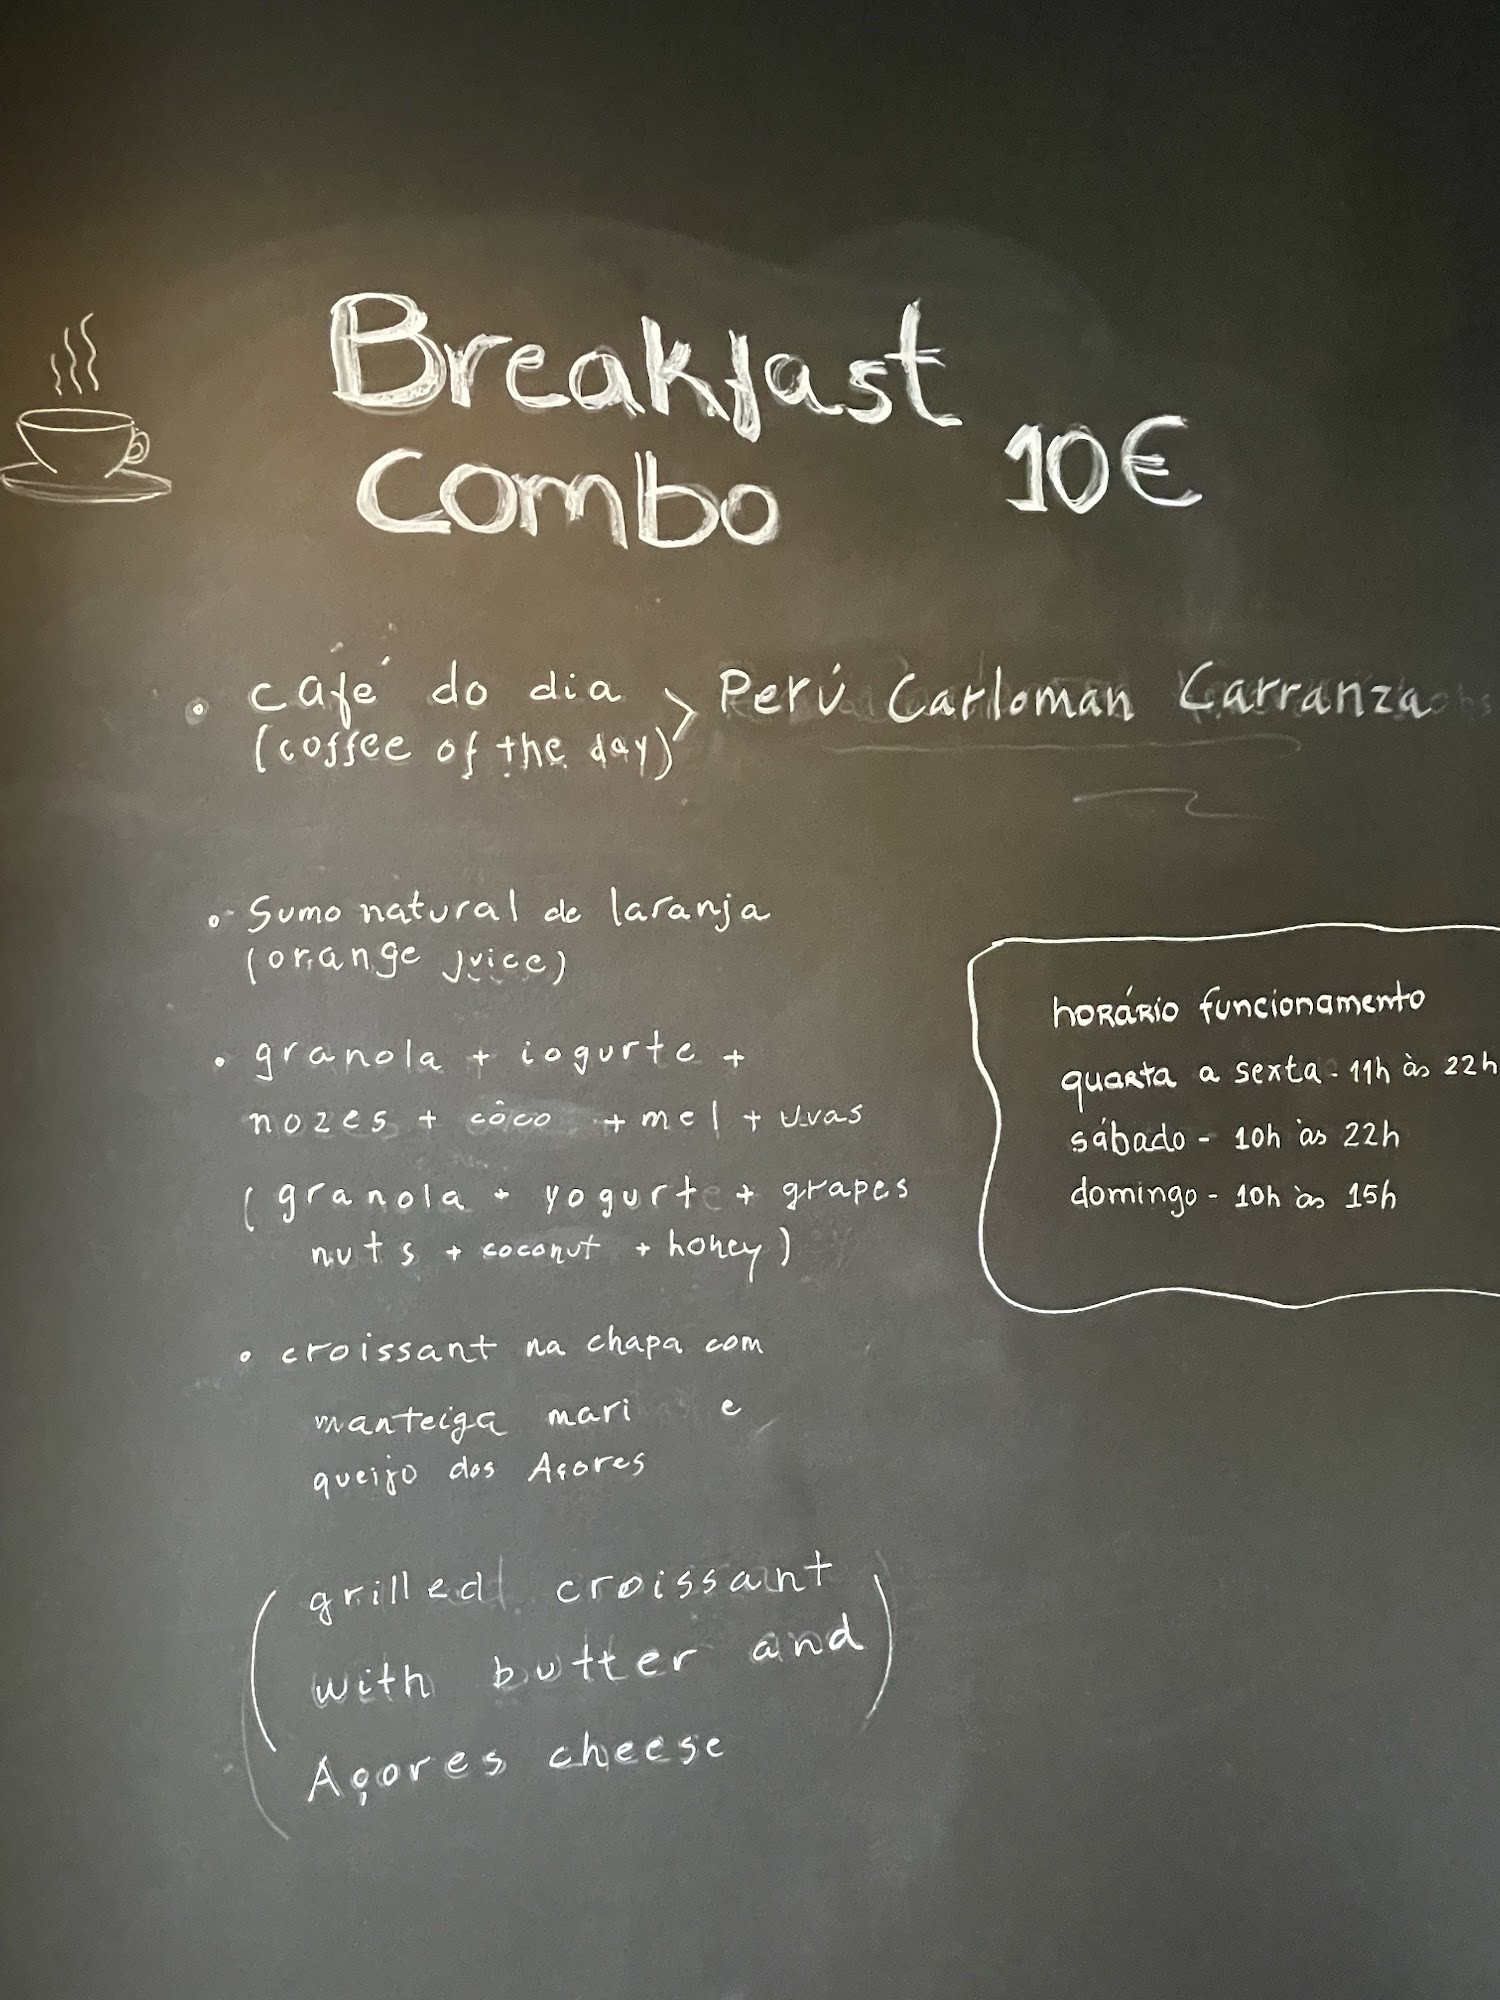 Breakfast
Combo 10€
• café do dia > Perú Carloman Carranza
(coffee of the day)
• Sumo natural de laranja
(orange juice)
• granola + iogurte +
nozes + côco + mel + uvas
(granola + yogurte + grapes
nuts + coconut + honey)
• croissant na chapa com
manteiga mari e
queijo dos Açores
(grilled croissant
with butter and
Açores cheese)
horário funcionamento
quarta a sexta - 11h às 22h
sábado - 10h às 22h
domingo - 10h às 15h